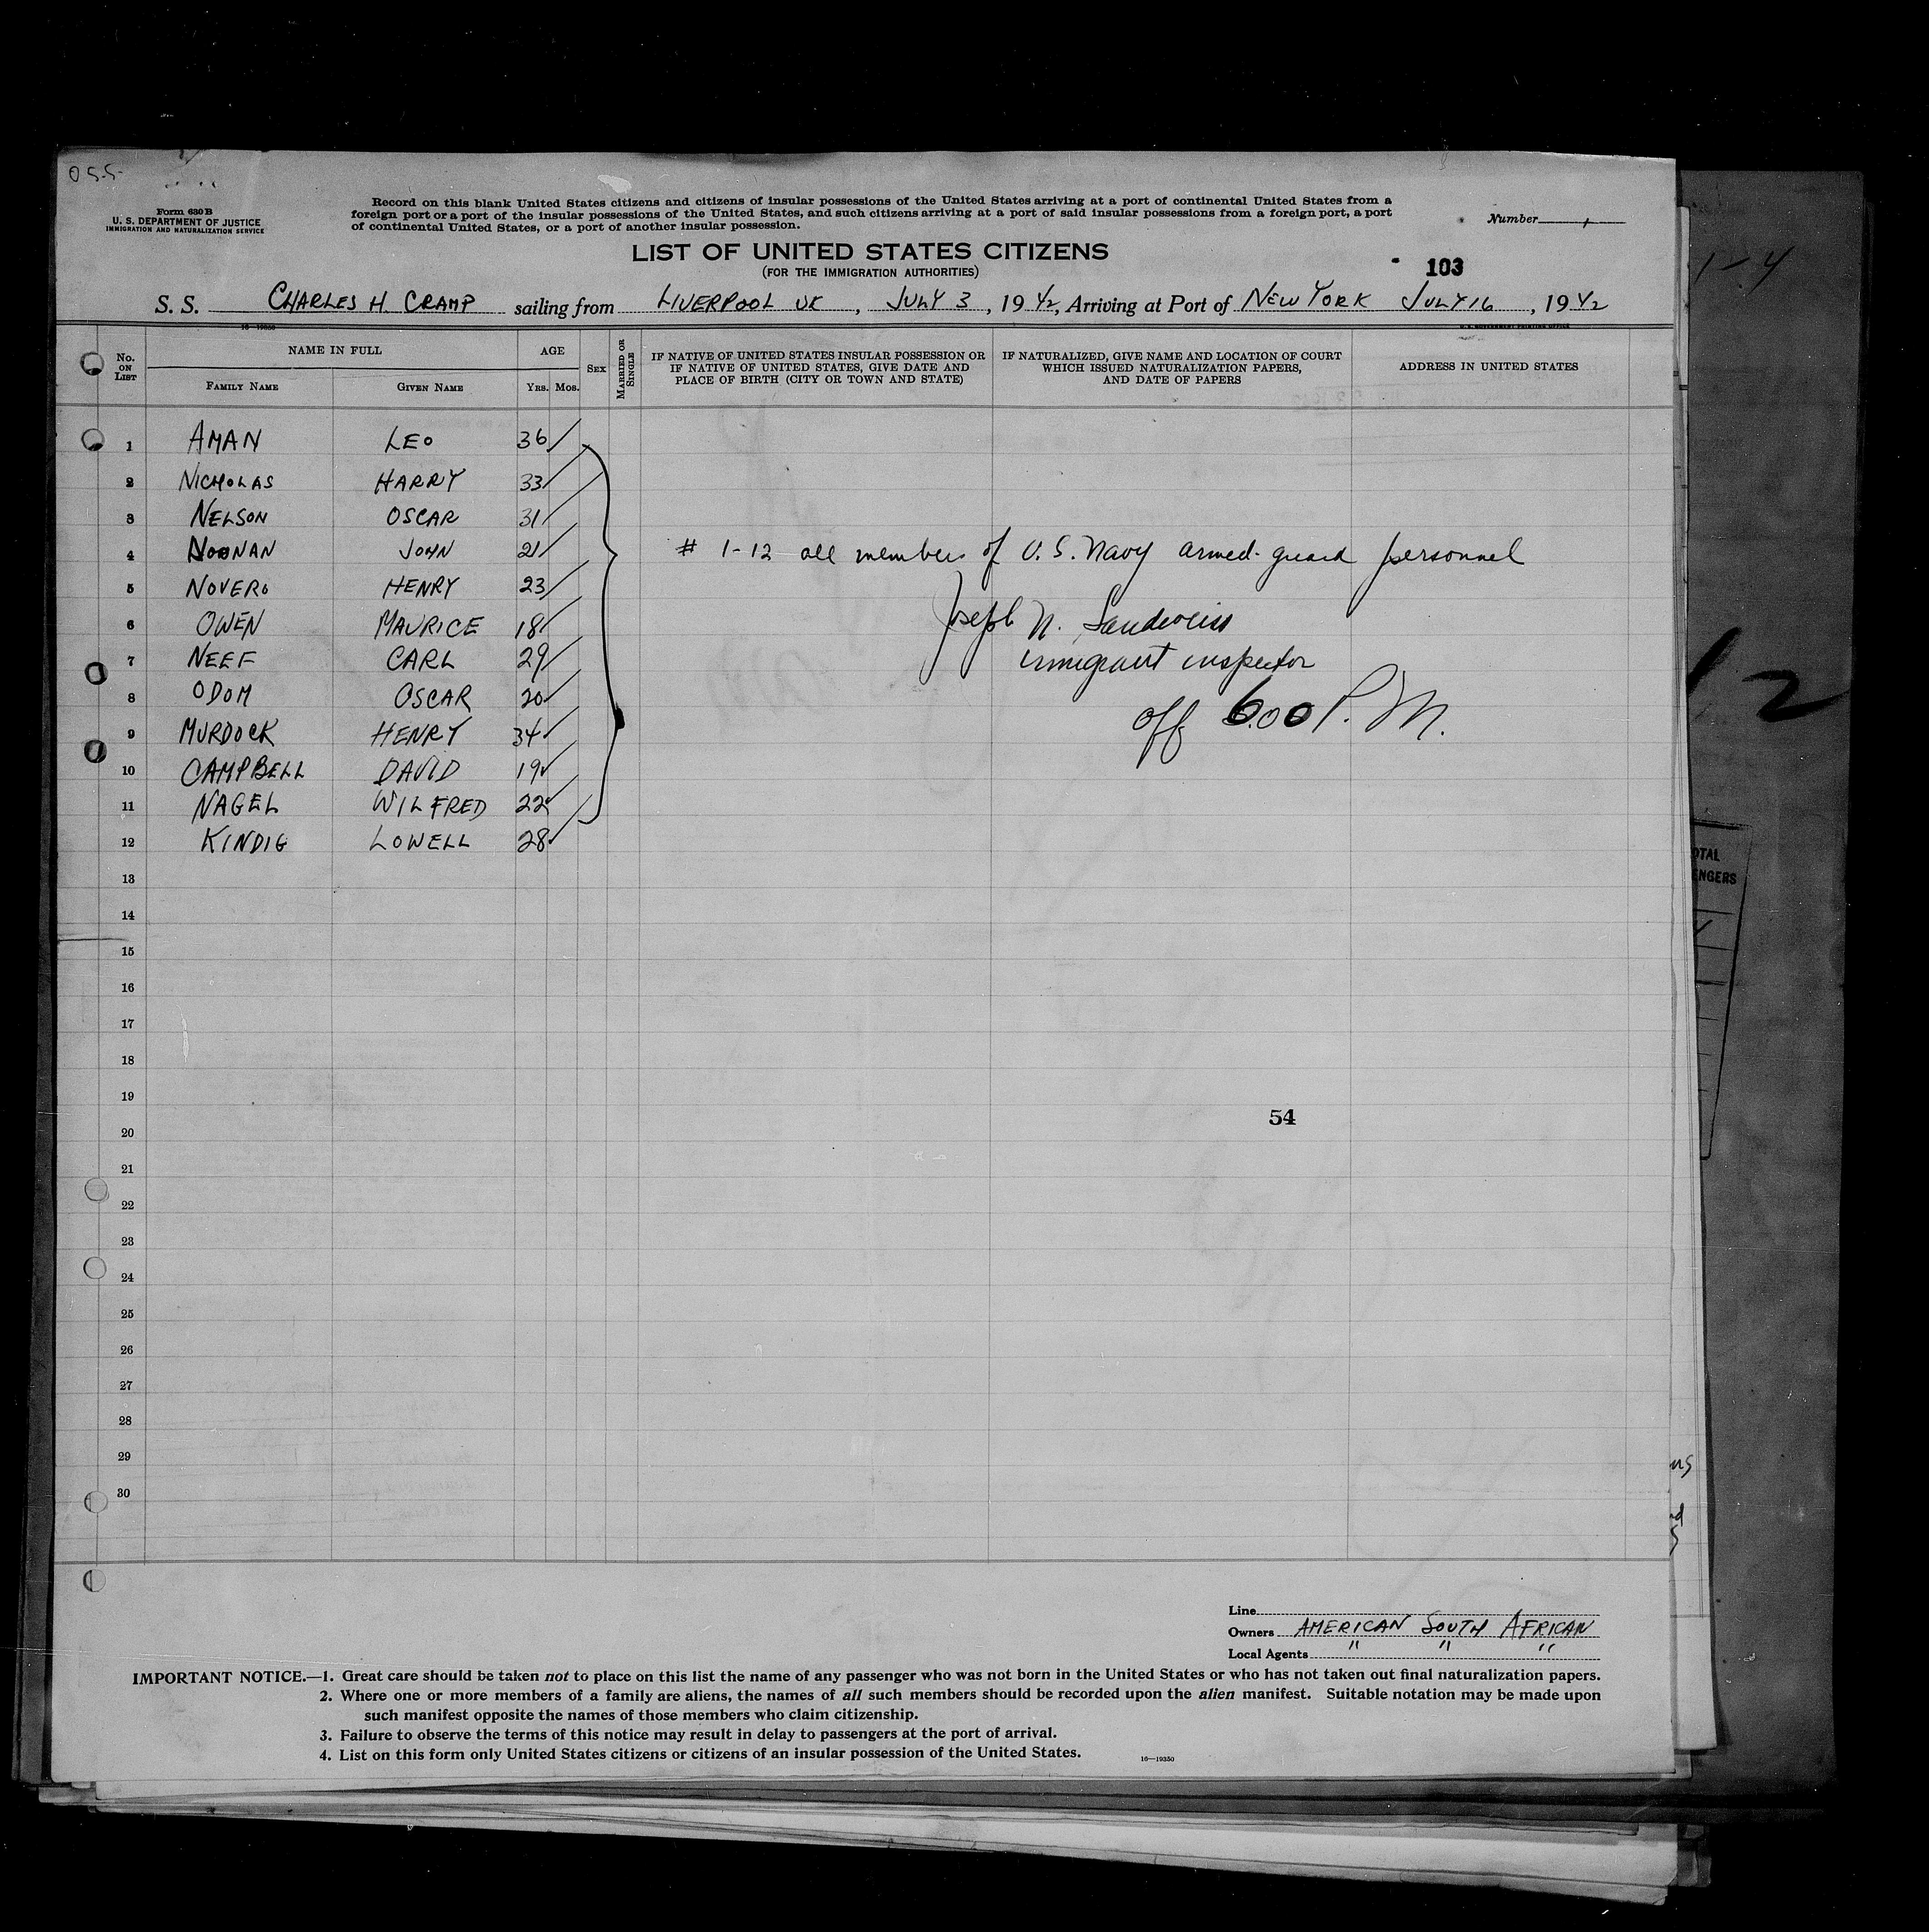 O S.S.
Form 630 B
U. S. DEPARTMENT OF JUSTICE
IMMIGRATION AND NATURALIZATION SERVICE
Record on this blank United States citizens and citizens of insular possessions of the United States arriving at a port of continental United States from a
foreign port or a port of the insular possessions of the United States, and such citizens arriving at a port of said insular possessions from a foreign port, a port
of continental United States, or a port of another insular possession.
Number
LIST OF UNITED STATES CITIZENS
(FOR THE IMMIGRATION AUTHORITIES)
103
1-4
S. S. CHARLES H. CRAMP sailing from LIVERPOOL UK, JULY 3, 1942, Arriving at Port of NEW YORK JULY 16, 1942
16—19350
U. S. GOVERNMENT PRINTING OFFICE
No. ON LIST
NAME IN FULL
FAMILY NAME
GIVEN NAME
AGE
YRS. MOS.
SEX
MARRIED OR SINGLE
IF NATIVE OF UNITED STATES INSULAR POSSESSION OR
IF NATIVE OF UNITED STATES, GIVE DATE AND
PLACE OF BIRTH (CITY OR TOWN AND STATE)
IF NATURALIZED, GIVE NAME AND LOCATION OF COURT
WHICH ISSUED NATURALIZATION PAPERS,
AND DATE OF PAPERS
ADDRESS IN UNITED STATES
1 AMAN LEO 36
2 NICHOLAS HARRY 33
3 NELSON OSCAR 31
4 NOONAN JOHN 21
# 1-12 all members of U. S. Navy armed-guard personnel
5 NOVERO HENRY 23
6 OWEN MAURICE 18
Joseph N. Sandweiss
7 NEEF CARL 29
immigrant inspector
8 ODOM OSCAR 20
off 6.00 P. M.
9 MURDOCK HENRY 34
10 CAMPBELL DAVID 19
11 NAGEL WILFRED 22
12 KINDIG LOWELL 28
12
OTAL
ENGERS
13
14
15
16
17
18
19
54
20
21
22
23
24
25
26
27
28
29
30
Line
Owners AMERICAN SOUTH AFRICAN
Local Agents " " "
IMPORTANT NOTICE.—1. Great care should be taken not to place on this list the name of any passenger who was not born in the United States or who has not taken out final naturalization papers.
2. Where one or more members of a family are aliens, the names of all such members should be recorded upon the alien manifest. Suitable notation may be made upon
such manifest opposite the names of those members who claim citizenship.
3. Failure to observe the terms of this notice may result in delay to passengers at the port of arrival.
4. List on this form only United States citizens or citizens of an insular possession of the United States.
16—19350